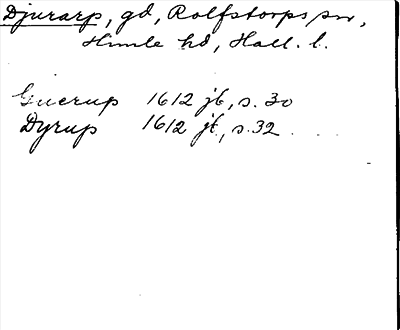 Djurarp, gd, Rolfstorps sn,
Himle hd, Hall. l.
Guerup 1612 jb, s. 30
Dyrup 1612 jb, s. 32